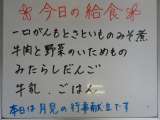 ※今日の給食※
一口がんもとさといものみそ煮
牛肉と野菜のいためもの
みたらしだんご
牛乳．ごはん
本日は月見の行事献立です